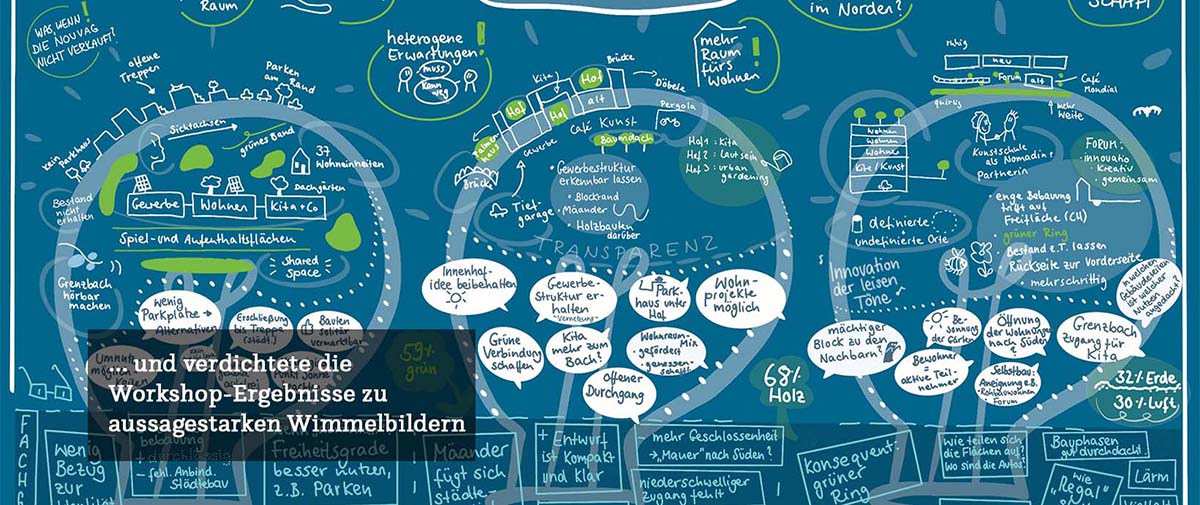 RAUM
WAS, WENN
DIE NOUVAG
NICHT VERKAUFT?
heterogene
Erwartungen!
muss
kann
weg
mehr
Raum
fürs
Wohnen!
im Norden?
SCHAFT
offene
Treppen
Parken
am
Rand
kein Parkhaus
Sichtachsen
grünes Band
37
Wohneinheiten
Dachgärten
Bestand
nicht
erhalten
Gewerbe
Wohnen
Kita + Co
Spiel- und Aufenthaltsflächen
shared
space
Grenzbach
hörbar
machen
wenig
Parkplätze →
Alternativen
Erschließung
bis Treppe
(städt.)
Bauten
vermarktbar
59%
grün
Brücke
Kita
Hof
Döbele
Hof
Hof
alt
Pergola
Palmen
haus
Gewerbe
Café Kunst
Baumdach
Brücke
• Gewerbestruktur
erkennbar lassen
• Blockrand
• Mäander
• Holzbauten
darüber
Tief-
garage
Hof 1: Kita
Hof 2: laut sein
Hof 3: urban
gardening
TRANSPARENZ
Innenhof-
idee beibehalten
Gewerbe-
Struktur er-
halten
Park-
haus unter
Hof
Wohn-
projekte
möglich
Grüne
Verbindung
schaffen
Kita
mehr zum
Bach?
Wohnraum:
gefördert
offener
Durchgang
68%
Holz
ruhig
neu
Forum
alt
Café
Mondial
quirlig
mehr
Weite
Wohnen
Wohnen
Wohnen
Kita / Kunst
Kunstschule
als Nomadin +
Partnerin
FORUM:
• innovativ
• kreativ
• gemeinsam
definierte
undefinierte Orte
• enge Bebauung
trifft auf
Freifläche (CH)
grüner Ring
Bestand z.T. lassen
Rückseite zur Vorderseite
• mehrschrittig
Innovation
der leisen
Töne
in welchen
Gebäudeteilen
ist welcher
Nutzen
angedacht?
mächtiger
Block zu den
Nachbarn?
Be-
sonnung
der Gärten
Öffnung
der Wohnungen
nach Süden?
Grenzbach
zugang für
Kita
Bewohner
aktive Teil-
nehmer
Selbstbau:
Aneignung z.B.
Rohbauwohnen
Forum
32% Erde
30% Luft
... und verdichtete die
Workshop-Ergebnisse zu
aussagestarken Wimmelbildern
FACH
wenig
Bezug
zur
bebauung
+ durchlässig
- fehl. Anbind.
Städtebau
Freiheitsgrade
besser nutzen,
z.B. Parken
Mäander
fügt sich
städte-
+ Entwurf
ist kompakt
und klar
- mehr Geschlossenheit
→ „Mauer" nach Süden?
niederschwelliger
zugang fehlt
Konsequent:
grüner
Ring
wie teilen sich
die Flächen auf?
Wo sind die Autos?
Bauphasen
gut durchdacht
wie
„Regal"
Lärm